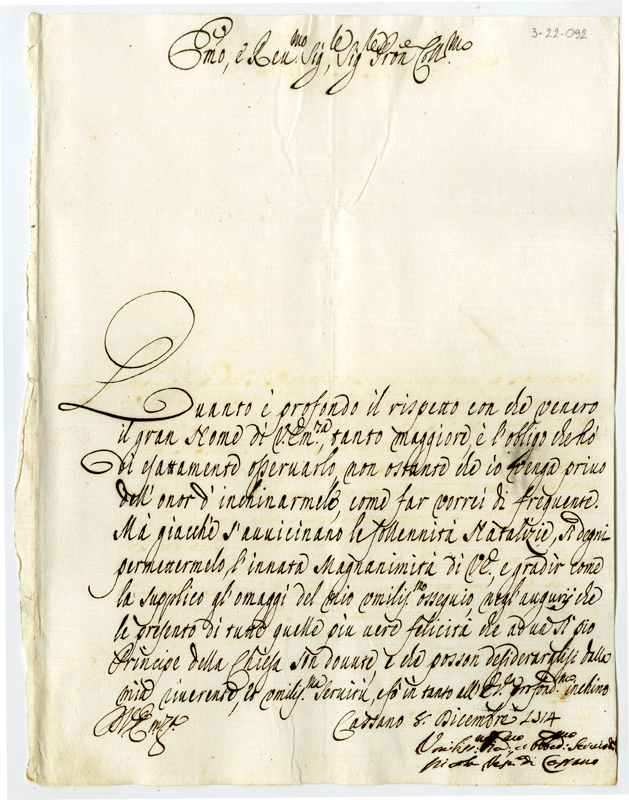 3-22-092
Emo, e Reu.mo Sig.le, Sig.le Pron Coll.mo
Quanto è profondo il rispetto con che venero
il gran Nome di V.Em.za, tanto maggiore è l'obligo che hò
di esattamente osservarlo, non ostante che io venga privo
dell'onor d'inchinarmele, come far vorrei di frequente.
Mà giacchè s'avvicinano le sollennità Natalizie, si degni
permettermelo l'innata Magnanimità di V.E., e gradir come
la supplico gl'omaggi del mio umilis.mo ossequio negl'augurj che
le presento di tutte quelle più vere felicità che ad un sì pio
Principe della Chiesa son dovute e che posson desiderarglisi dalla
mia riverente, et umilis.ma Servitù, e in tanto all'E.V. profond.mo inchino
D. V. Em.za
Cassano 8. Dicembre 1714
Umiliss.mo et obbed. Servid.
Nicolò Vesc. di Cassano